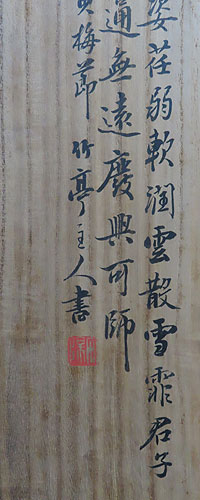 姿荏弱軟潤雲散雪霏君子
通無遠慶興可師
梅節竹亭主人書